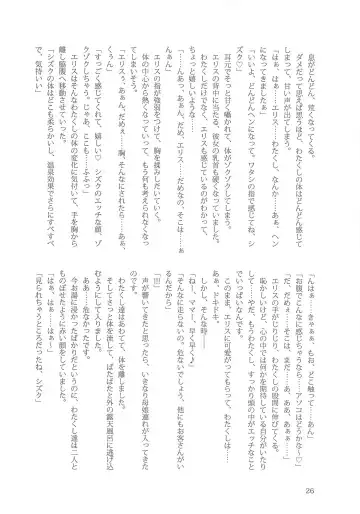 息がどんどん、荒くなってくる。
ダメだって思えば思うほど、わたくしの体はどんどん感じて
しまって、甘い声が出てしまう。
「はぁ……はぁ……エリス……わたくし、なんか……あぁ、ヘン
になってきました……はぁ……」
「いいよ、どんどんヘンになって。ワタシの指で感じて♡ シ
ズク♡」
耳元でそっと甘く囁かれて、体がゾクゾクしてしまう。
エリスの背中に当たる、彼女の乳首も硬くなっていました。
わたくしだけでなく、エリスも感じているのが分かって……
もっと嬉しいような……
「……んあっ、あぁん……エリス……だめなの、そこは……ぅ
くぁん」
エリスの指が強弱をつけて、胸を揉みしだいていく。
「エリスぅ、あぁん、だめぇ……胸、そんなにされたら……」
体の中心から熱くなっていって、もう何も考えられなくなっ
てしまいそう。
「すっごく感じてくれて、嬉しい♡ シズクのエッチな顔、ゾ
クゾクしちゃう。じゃあ、ここも……ふふっ」
エリスはそんなわたくしの体の変化に気付いて、手を胸から
離し脇腹へ移動させていった。
「シズクの体はどこも柔らかいし、温泉効果でさらにすべすべ
で、気持いい」
「んはぁ……きゃぁぁ、もお、どこ触って……あん」
「お腹でこんなに感じちゃうなら……アソコはどうかな～♡」
「だ、だめぇ……そこは、まだ……あ、ああ、あぁぁ……」
エリスの手がじりじりと、わたくしの股間に伸びてくる。
恥ずかしいけど、心の中では何かを期待している自分がいたり
して……やだ、もうわたくし、すっかり頭の中がエッチなこと
でいっぱいなんです。
このまま、エリスに可愛がってもらえたら、わたくしは……
あぁ、ドキドキ。
しかし、そんな時――
「ねー、ママー、早く早く♪」
「そんなに走らないの、危ないでしょう、他にもお客さんがい
るんだから」
「!!!」
声が響いてきたと思ったら、いきなり母娘連れが入ってきた
のです。
わたくし達はあわてて、体を離しました。
そしてさっと体を流して、ばたばたと外の露天風呂に逃げ込
むようにして入りました。
ああ……危なかったです。
今お湯に浸かったばかりだというのに、わたくし達は二人と
ものぼせたように赤い顔をしていました。
「はぁ、はぁ、……はぁ……」
「見られちゃうところだったね、シズク」
26